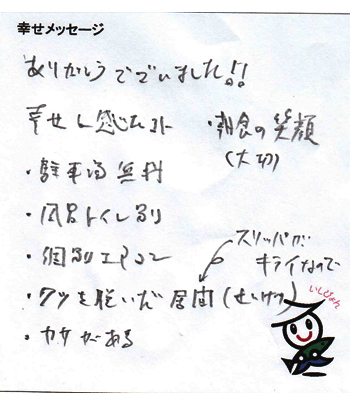 幸せメッセージ
ありがとうございました!!
幸せに感じたコト
・駐車場無料
・風呂トイレ別
・個別エアコン
・クツを脱いだ居間(せいけつ)
・カサがある
・朝食の笑顔
(大切)
スリッパが
キライなので
いしぴょん